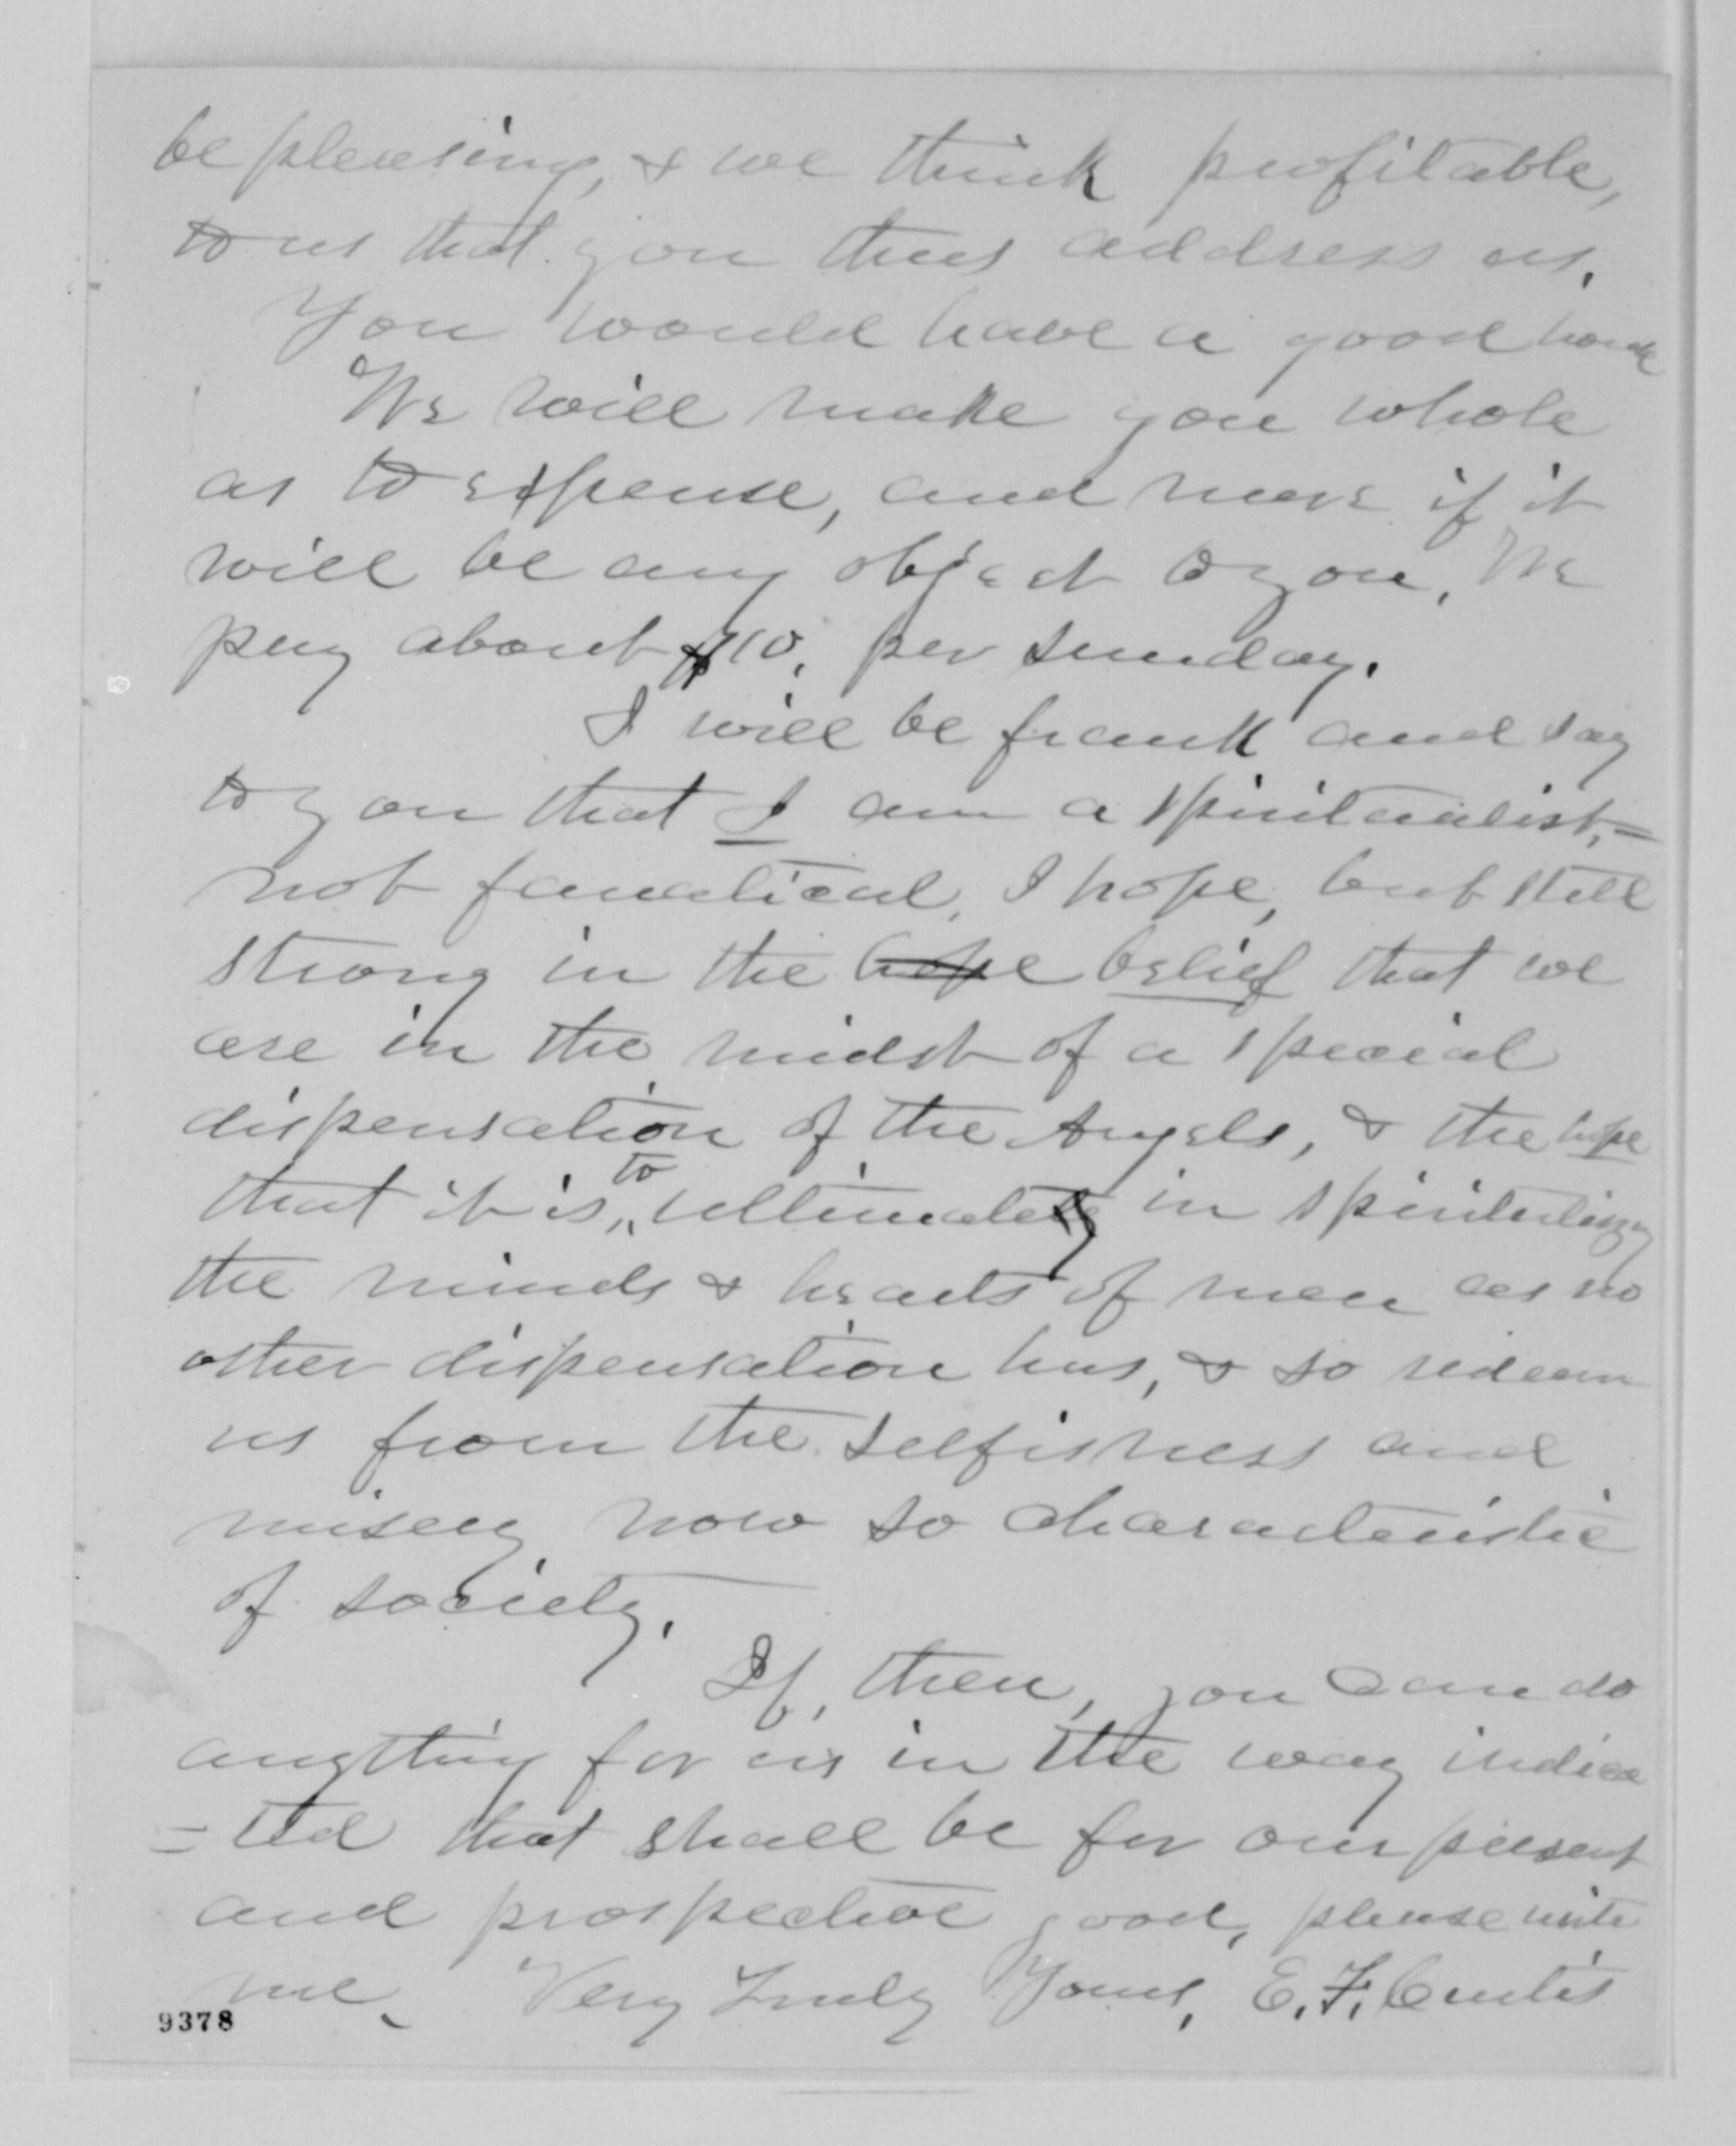 be pleasing, & we think profitable,
to us that you thus address us.
You would have a good home
We will make you whole
as to expense, and more if it
will be any object to you. We
pay about $10. per sunday.
I will be frank and say
to you that I am a spiritualist, =
not fanatical, I hope, but still
strong in the hope belief that we
are in the midst of a special
dispensation of the Angels, & the hope
that it is, to ultimately in spiritualizing
the minds & hearts of men as no
other dispensation has, & so redeem
us from the selfishness and
misery now so characteristic
of society.
If, then, you can do
anything for us in the way indica
= ted that shall be for our present
and prospective good, please write
me. Very Truly Yours, E. F. Curtis
9378